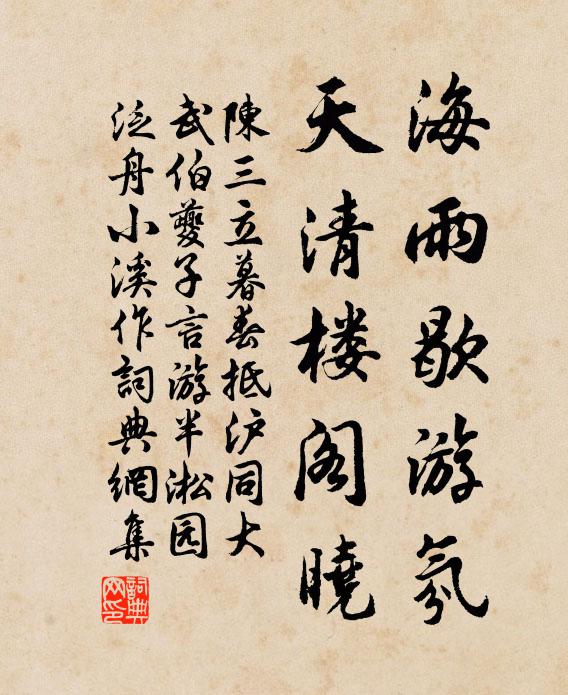 海雨歇游氛
天清楼阁曉
陳三立暮春抵沪同大
武伯夔子言游半淞园
泛舟小溪作詞典網集
詞典网印